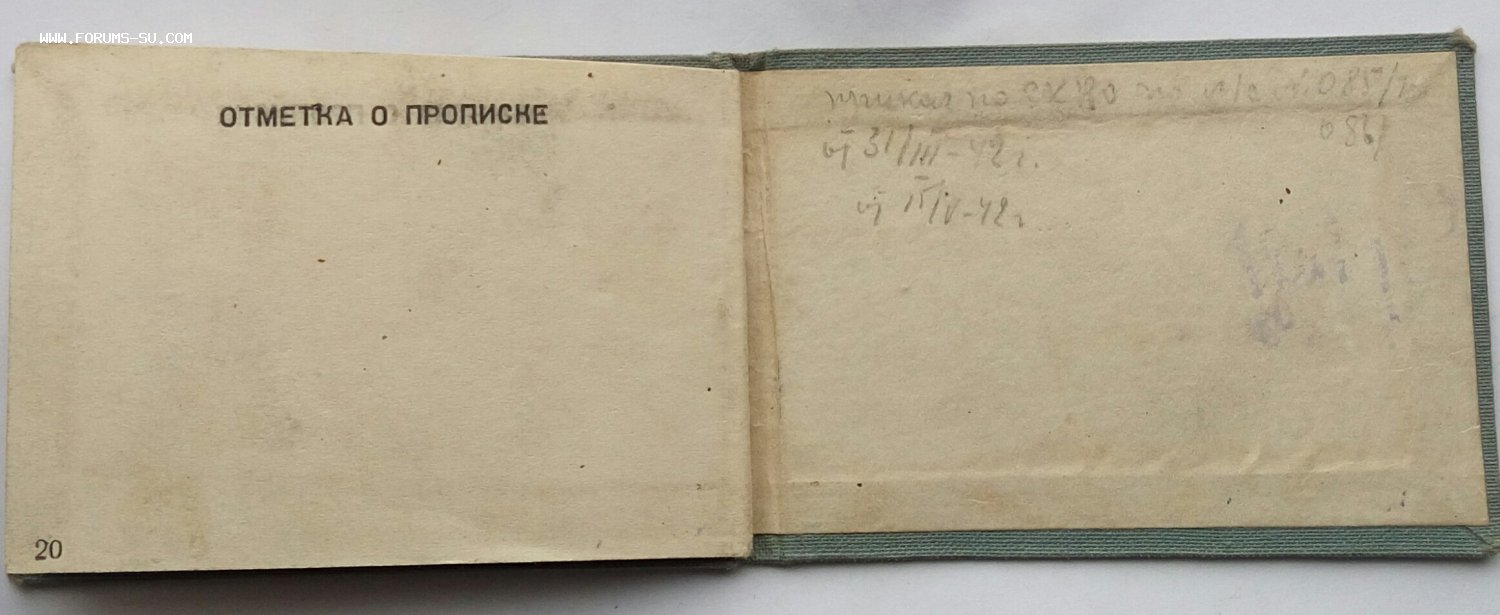 WWW.FORUMS-SU.COM
ОТМЕТКА О ПРОПИСКЕ
20
приказ по СКВО по л/с № 085/
086/
от 31/III-42 г.
от /V-42 г